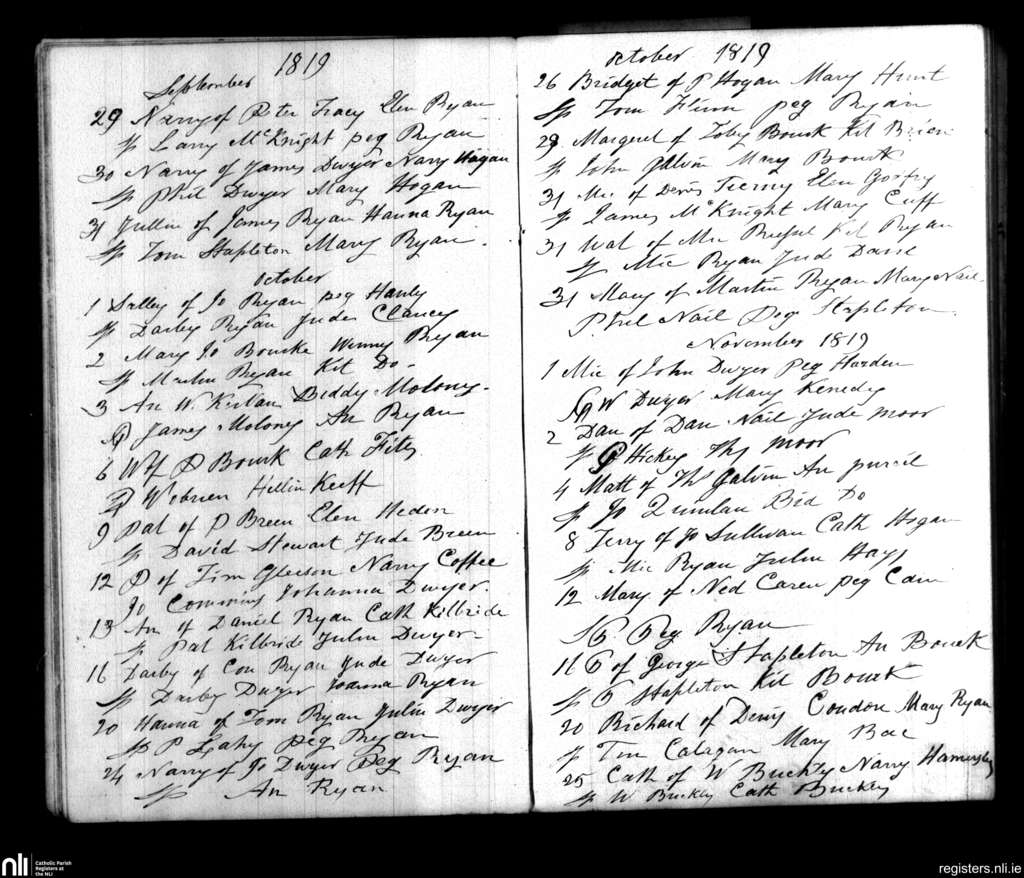 1819
September
29 Narry of Peter Tracy Elen Ryan
Sp Larry McKnight peg Ryan
30 Narry of James Dwyer Narry Hogan
Sp Phil Dwyer Mary Hogan
31 Jullin of James Ryan Hanna Ryan
Sp Tom Stapleton Mary Ryan
October
1 Salley of Jo Ryan peg Hanly
Sp Darby Ryan Jude Clancy
2 Mary Jo Bourke Winney Ryan
Sp Ryan Kit Do
3 An W. Biddy Molony
Sp James Molony An Ryan
6 Wm of D Bourk Cath Fitz
Sp W obrien Hellin Keeff
9 Pat of D Breen Elen Hedon
Sp David Stewart Jude Breen
12 D of Tim Gleeson Narry Coffee
Jo Commins Johanna Dwyer
13 An of Daniel Ryan Cath Kilbride
Sp Pat Kilbride Julin Dwyer
16 Darby of Con Ryan Jude Dwyer
Sp Darby Dwyer Joanna Ryan
20 Hanna of Tom Ryan Julin Dwyer
Sp P Leahy peg Ryan
24 Narry of Jo Dwyer Peg Ryan
Sp An Ryan
October 1819
26 Bridget of P Hogan Mary Hunt
Sp Tom Flinn peg Ryan
29 Margeret of Toby Bourk Kit Brien
Sp John Galvin Mary Bourk
31 Mic of Denis Tierny Elen Gorfry
Sp James McKnight Mary Cuff
31 Wal of Mic Kit Ryan
Sp Mic Ryan Jude
31 Mary of Martin Ryan Mary Nail
Phil Nail Peg Stapleton
November 1819
1 Mic of John Dwyer peg Harden
Sp W Dwyer Mary Kenedy
2 Dan of Dan Nail Jude moor
Sp P Hickey Thos moor
4 Matt of Thos Galvin An purcil
Sp Jo Quinlan Bid Do
8 Terry of Jo Sullivan Cath Hogan
Sp Mic Ryan Julin Hays
12 Mary of Ned Caren peg Cain
Sp Peg Ryan
16 of George Stapleton An Bourk
Sp Stapleton Kit Bourk
20 Richard of Denis Condon Mary Ryan
Sp Tim Calagan Mary
25 Cath of W Buckly Narry Hamersly
Sp W Buckley Cath Buckley
nli
Catholic Parish
Registers at
the NLI
registers.nli.ie